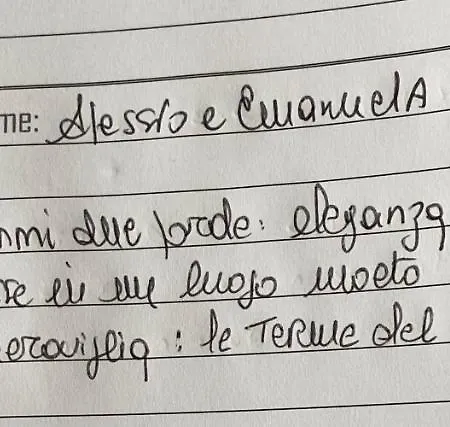 me: Alessio e EmanuelA
mmi due parole: eleganza
re in un luogo molto
eraviglia: le Terme del